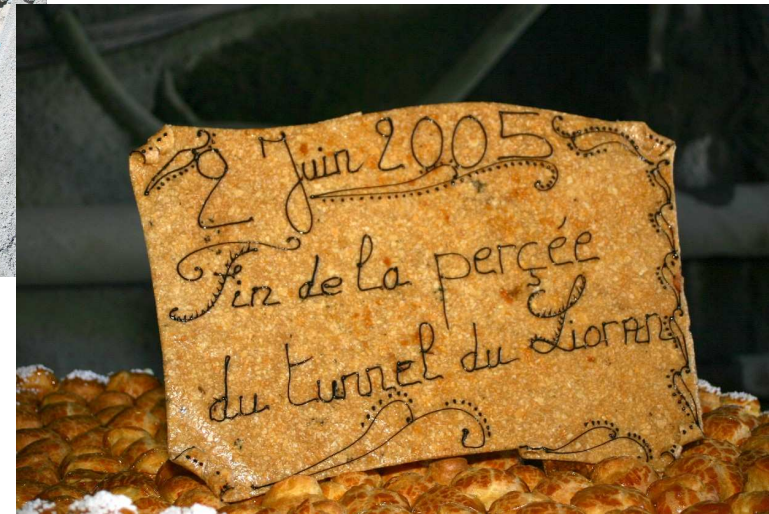 2 Juin 2005
Fin de la perçée
du tunnel du Lioran